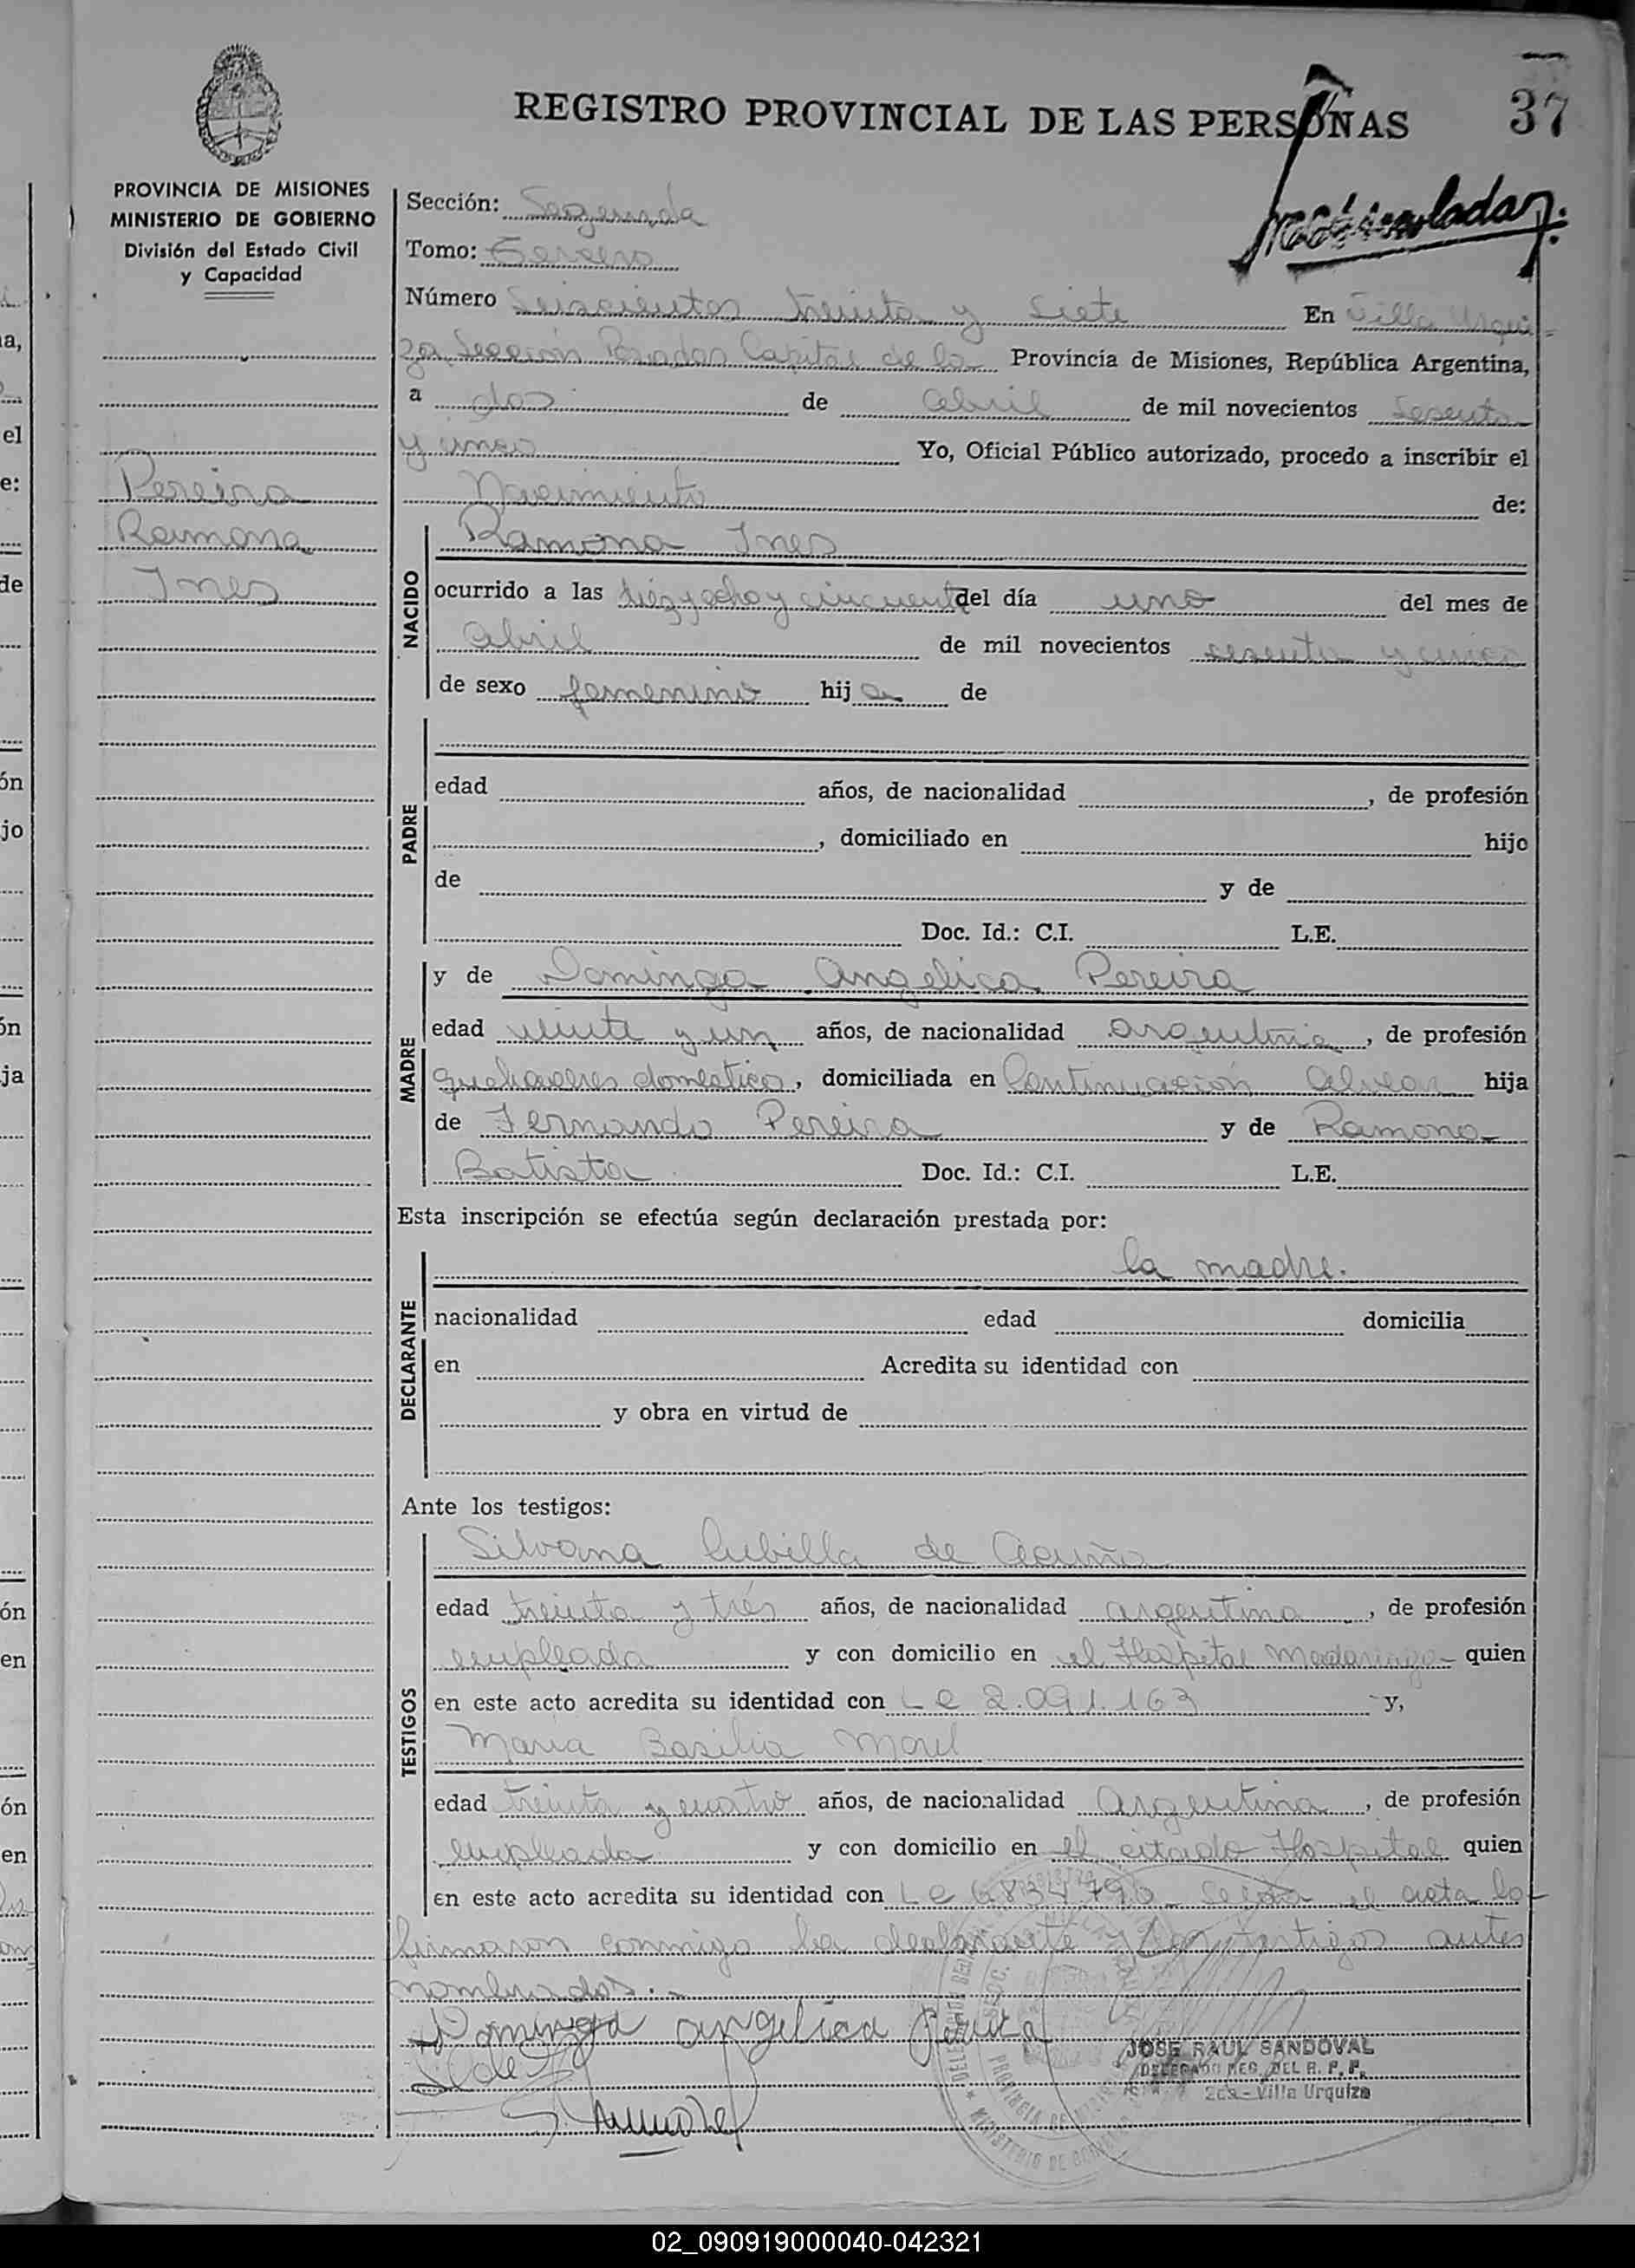 REGISTRO PROVINCIAL DE LAS PERSONAS
37
PROVINCIA DE MISIONES
MINISTERIO DE GOBIERNO
División del Estado Civil
y Capacidad
Pereira
Ramona
Ines
Sección: Segunda
Tomo: Tercero
Número Seiscientos treinta y siete En Villa Urqui-
za Sección Posadas Capital de la Provincia de Misiones, República Argentina,
a dos de abril de mil novecientos sesenta
y uno Yo, Oficial Público autorizado, procedo a inscribir el
Nacimiento de:
NACIDO
Ramona Ines
ocurrido a las diez y ocho y cincuenta del día uno del mes de
abril de mil novecientos sesenta y uno
de sexo femenino hija de
PADRE
edad años, de nacionalidad , de profesión
, domiciliado en hijo
de y de
Doc. Id.: C.I. L.E.
MADRE
y de Dominga Angelica Pereira
edad veinte y un años, de nacionalidad argentina, de profesión
quehaceres domestico, domiciliada en Continuación Alvear hija
de Fernando Pereira y de Ramona
Batista Doc. Id.: C.I. L.E.
Esta inscripción se efectúa según declaración prestada por:
DECLARANTE
la madre.
nacionalidad edad domicilia
en Acredita su identidad con
y obra en virtud de
Ante los testigos:
TESTIGOS
Silvana Cubilla de Acuña
edad treinta y trés años, de nacionalidad argentina, de profesión
empleada y con domicilio en el Hospital Madariaga quien
en este acto acredita su identidad con L C 2.091.163 y,
Maria Basilia Morel
edad treinta y cuatro años, de nacionalidad argentina, de profesión
empleada y con domicilio en el citado Hospital quien
en este acto acredita su identidad con L C 6.834.790 Leida el acta la
firmaron conmigo la declarante y los testigos antes
nombrados.-
Dominga angelica Pereira
JOSE RAUL SANDOVAL
DELEGADO REG. DEL R. P. P.
2da - Villa Urquiza
02_090919000040-042321